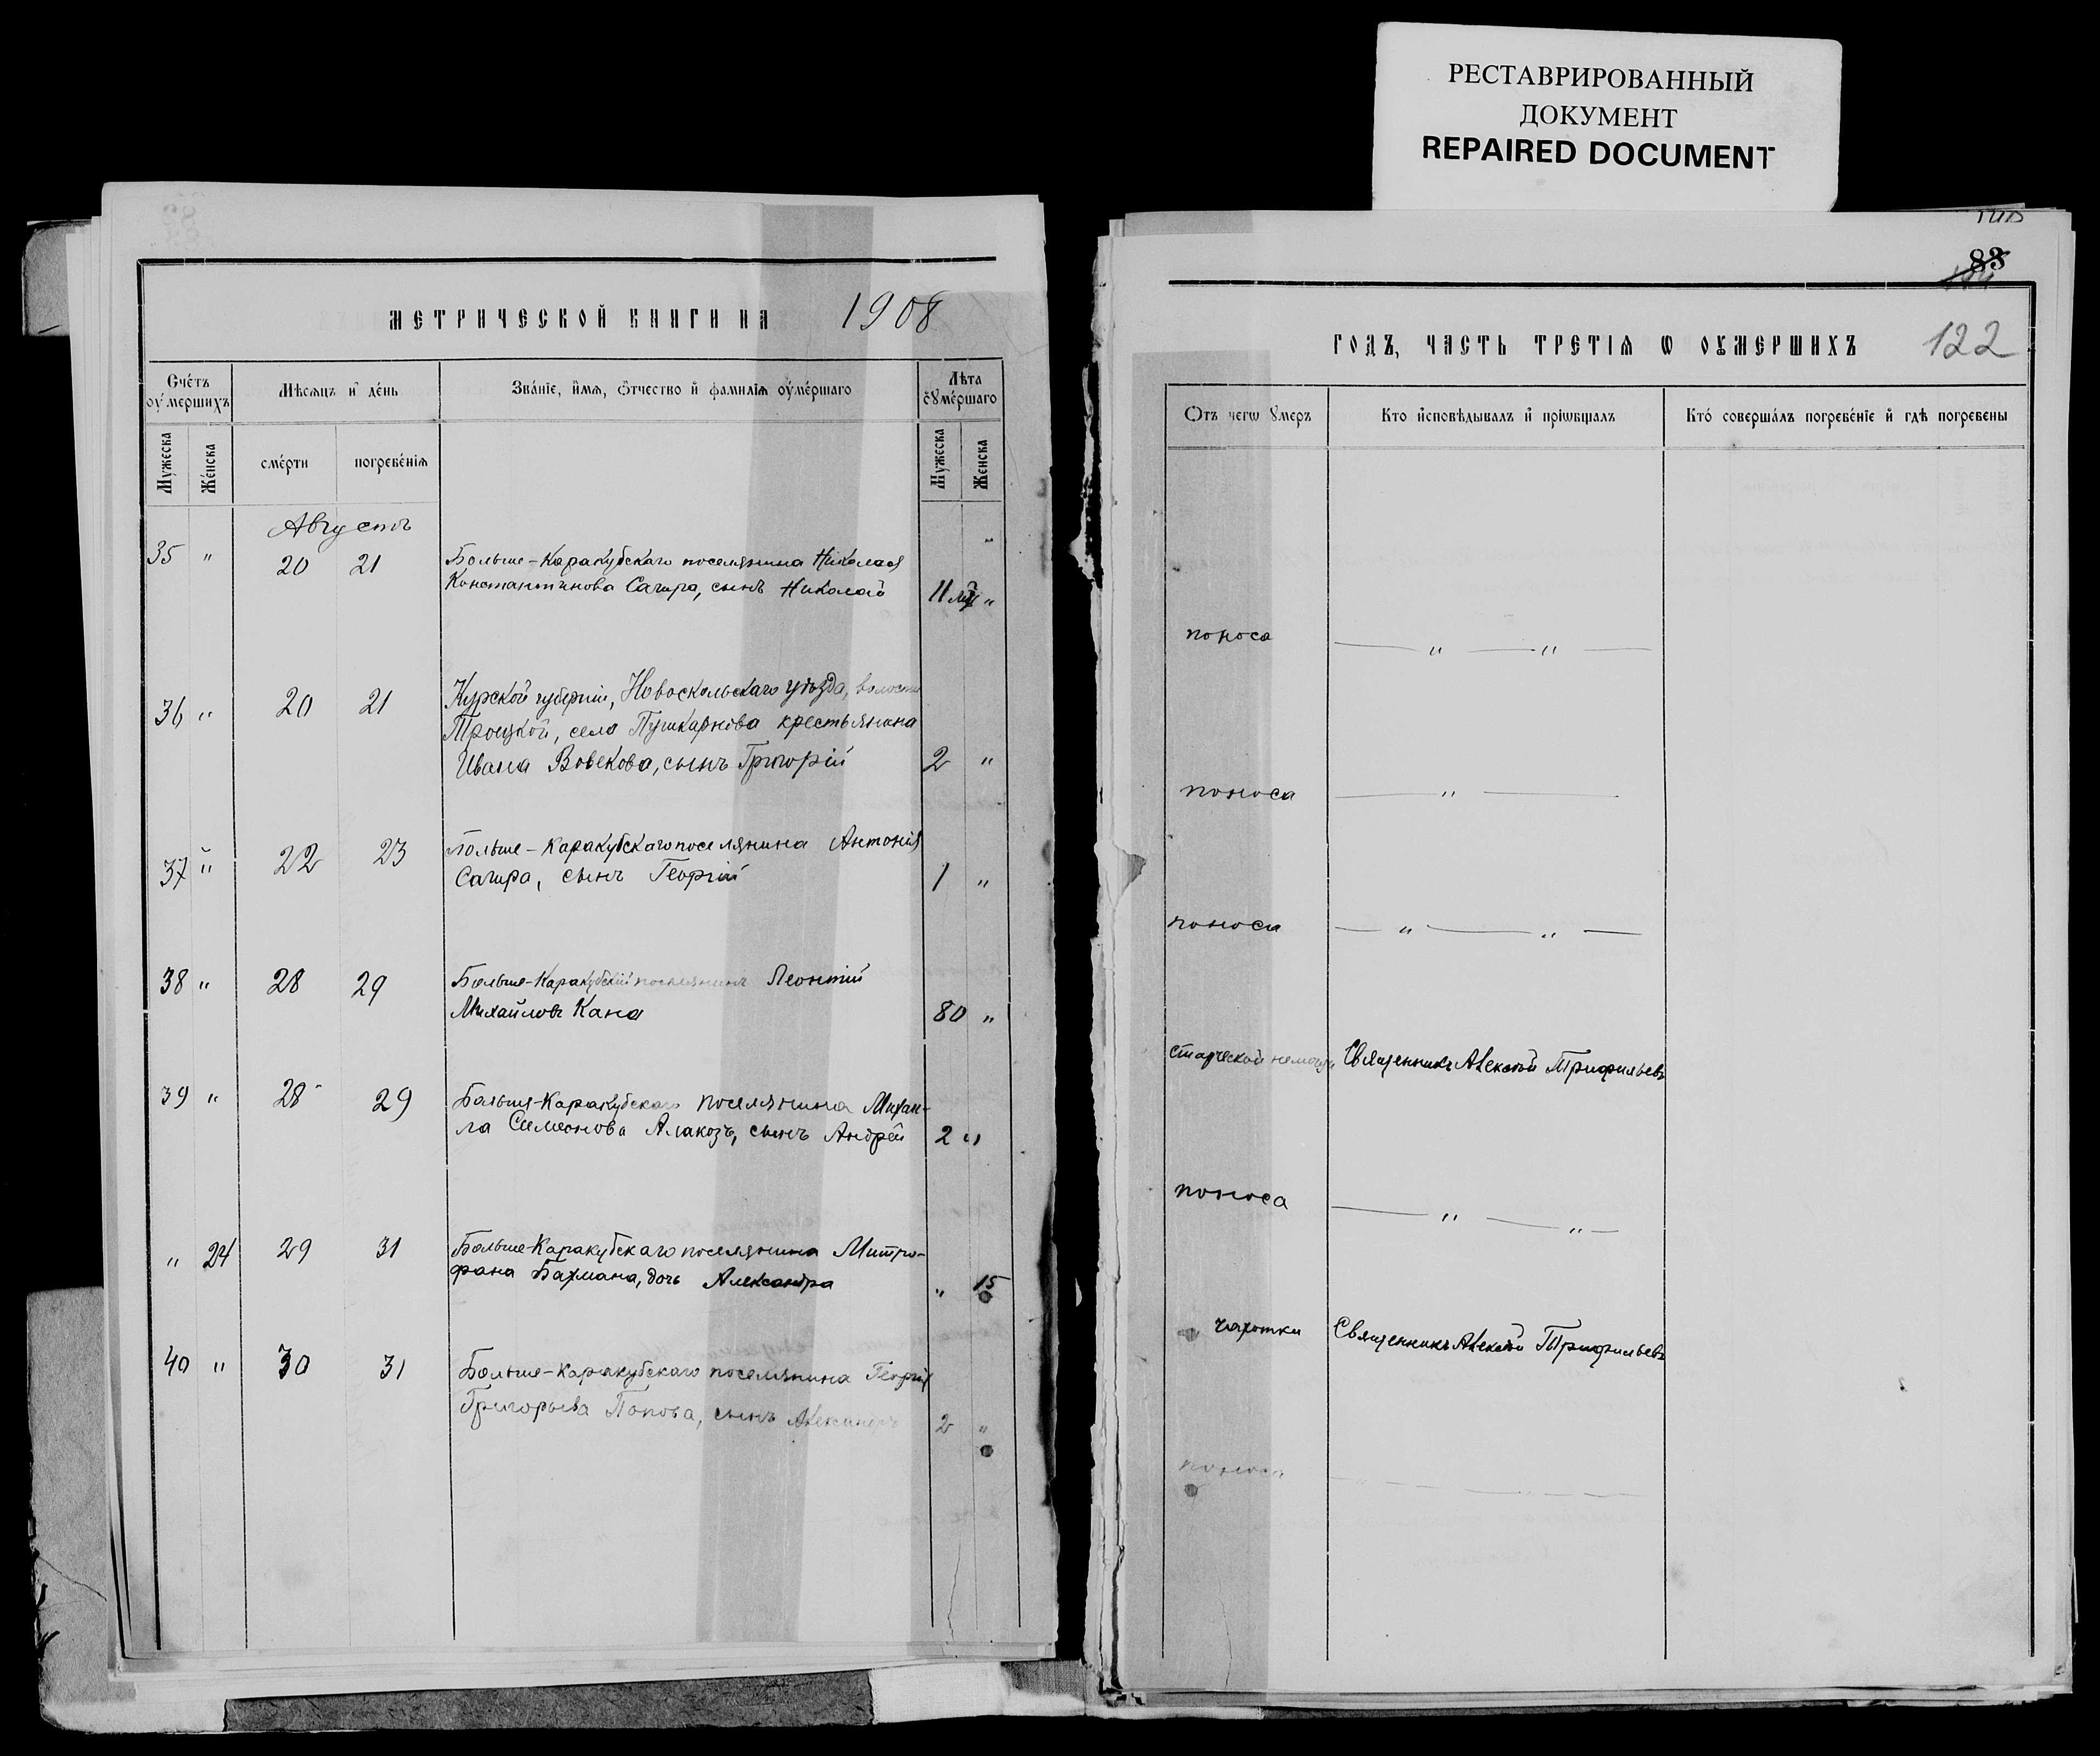 РЕСТАВРИРОВАННЫЙ
ДОКУМЕНТ
REPAIRED DOCUMENT
МЕТРИЧЕСКОЙ КНИГИ НА 1908
Сче́тъ оу́мершихъ
Мѣсяцъ и҆ де́нь
Зва́нїе, и҆́мѧ, ѻ҆́тчество и҆ фамилїѧ оу҆ме́ршаго
Лѣта ᲂу҆ме́ршаго
Мужеска
Женска
сме́рти
погребе́нїѧ
Мужеска
Женска
Августъ
35 " 20 21 Больше-Каракубскаго поселянина Николая
Константинова Сагира, сынъ Николай 11 "
36 " 20 21 Курской губернии, Новоскольскаго уѣзда, волости
Троицкой, села Пушкарнова крестьянина
Ивана Вовекова, сынъ Григорій 2 "
37 " 22 23 Больше-Каракубскаго поселянина Антонія
Сагира, сынъ Георгій 1 "
38 " 28 29 Больше-Каракубскій поселянинъ Леонтій
Михайловъ Кана 80 "
39 " 28 29 Больше-Каракубскаго поселянина Михаи-
ла Симеонова Алакозъ, сынъ Андрей 2 "
" 24 29 31 Больше-Каракубскаго поселянина Митро-
фана Бахмана, дочь Александра " 15
40 " 30 31 Больше-Каракубскаго поселянина Георгія
Григорьева Попова, сынъ Александръ 2 "
83
ГОДЪ, ЧАСТЬ ТРЕТІЯ Ѡ ОУМЕРШИХЪ 122
Ѿтъ чегѡ ᲂумеръ
Кто и҆сповѣдывалъ и҆ прїѡбщалъ
Кто́ соверша́лъ погребе́нїе и҆ гдѣ погребены
поноса — " — " —
поноса — " —
поноса — " — " —
старческой немощи Священникъ Алексѣй Трифильевъ
поноса — " — " —
чахотки Священникъ Алексѣй Трифильевъ
поноса — " — " —